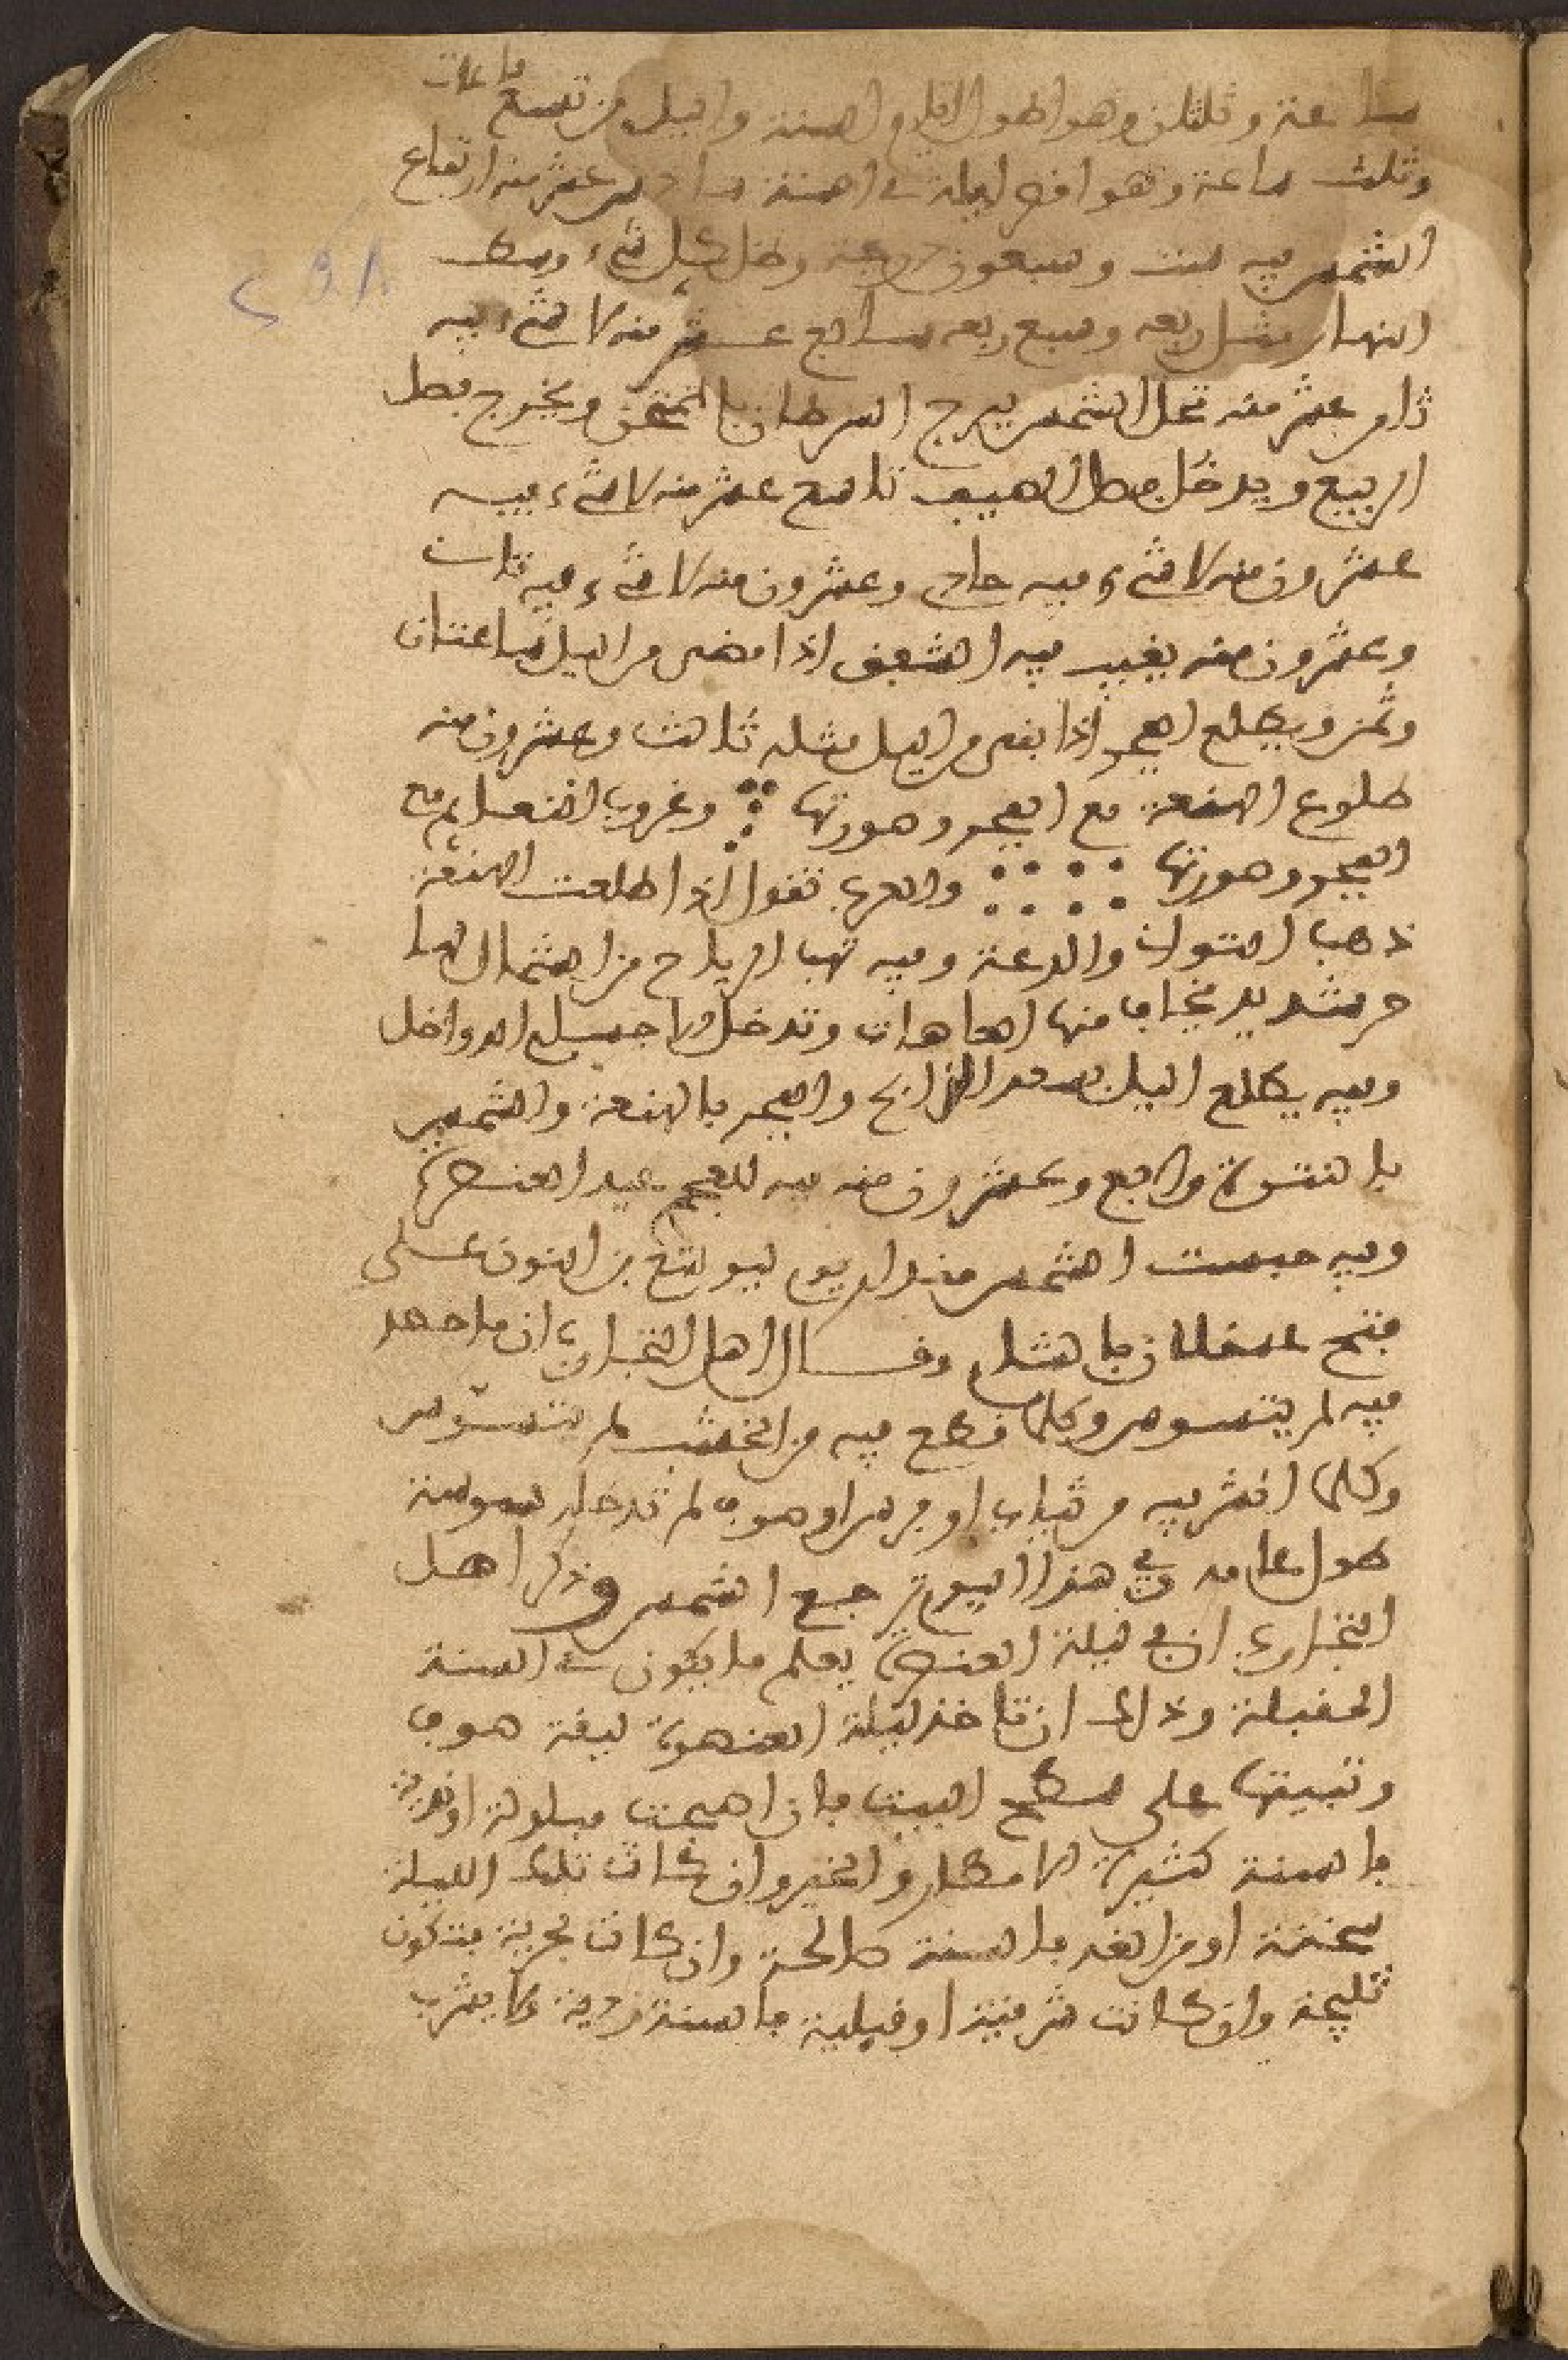 ساعة وثلثان وهو اطول الايام في السنة والليل من تسع ساعات
وثلث ساعة وهو اقصر ليلة في السنة سادس عشر منه ارتفاع
الشمس فيه ست وسبعون درجة وظل كل شيء وسط
النهار مثل ربعه وسبع ربعه سابع عشر منه لا شيء فيه
ثامن عشر منه تحل الشمس ببرج السرطان بالممتحن ويخرج فصل
الربيع ويدخل فصل الصيف تاسع عشر منه لا شيء فيه
عشرون منه لا شيء فيه حادي وعشرون منه لا شيء فيه ثان
وعشرون منه يغيب فيه الشفق اذا مضى من اليل ساعتان
وثمن ويطلع الفجر اذا بقى من اليل مثله ثالث وعشرون منه
طلوع الهنعة مع الفجر وصورتها وغروب النعايم مع
الفجر وصورتها والعرب تقول اذا طلعت الهنعة
ذهب التوان والدعة وفيه تهب الرياح من الشمال لها
حر شديد يخاف منها العاهات وتدخل في جميع الدواخل
وفيه يطلع اليل بسعد الذابح والفجر بالهنعة والشمس
بالنثرة رابع وعشرون منه فيه للعجم عيد العنصرة
وفيه حبست الشمس عند الريوس ليوشع بن النون على
فتح عسقلان بالشام وقال اهل التجارب ان ما حصد
فيه لم يتسوس وكلما قطع فيه من الخشب لم يتسوس
وكلما انشر فيه من ثياب او فرش او صوف لم تدخله سوسة
طول عامه وفي هذا اليوم ترجع الشمس وذكر اهل
التجارب ان في ليلة العنصرة يعلم ما يكون في السنة
المقبلة وذلك ان تاخذ ليلة العنصرة ليقة صوف
وتبيتها على سطح البيت فان اصبحت مبلولة او ندية
فالسنة كثيرة الامطار والخير وان كانت تلك الليلة
سخنة او من الغد فالسنة صالحة وان كانت بحرية فتكون
ثليجة وان كانت شرقية او قبلية فالسنة ردية كما يشرب